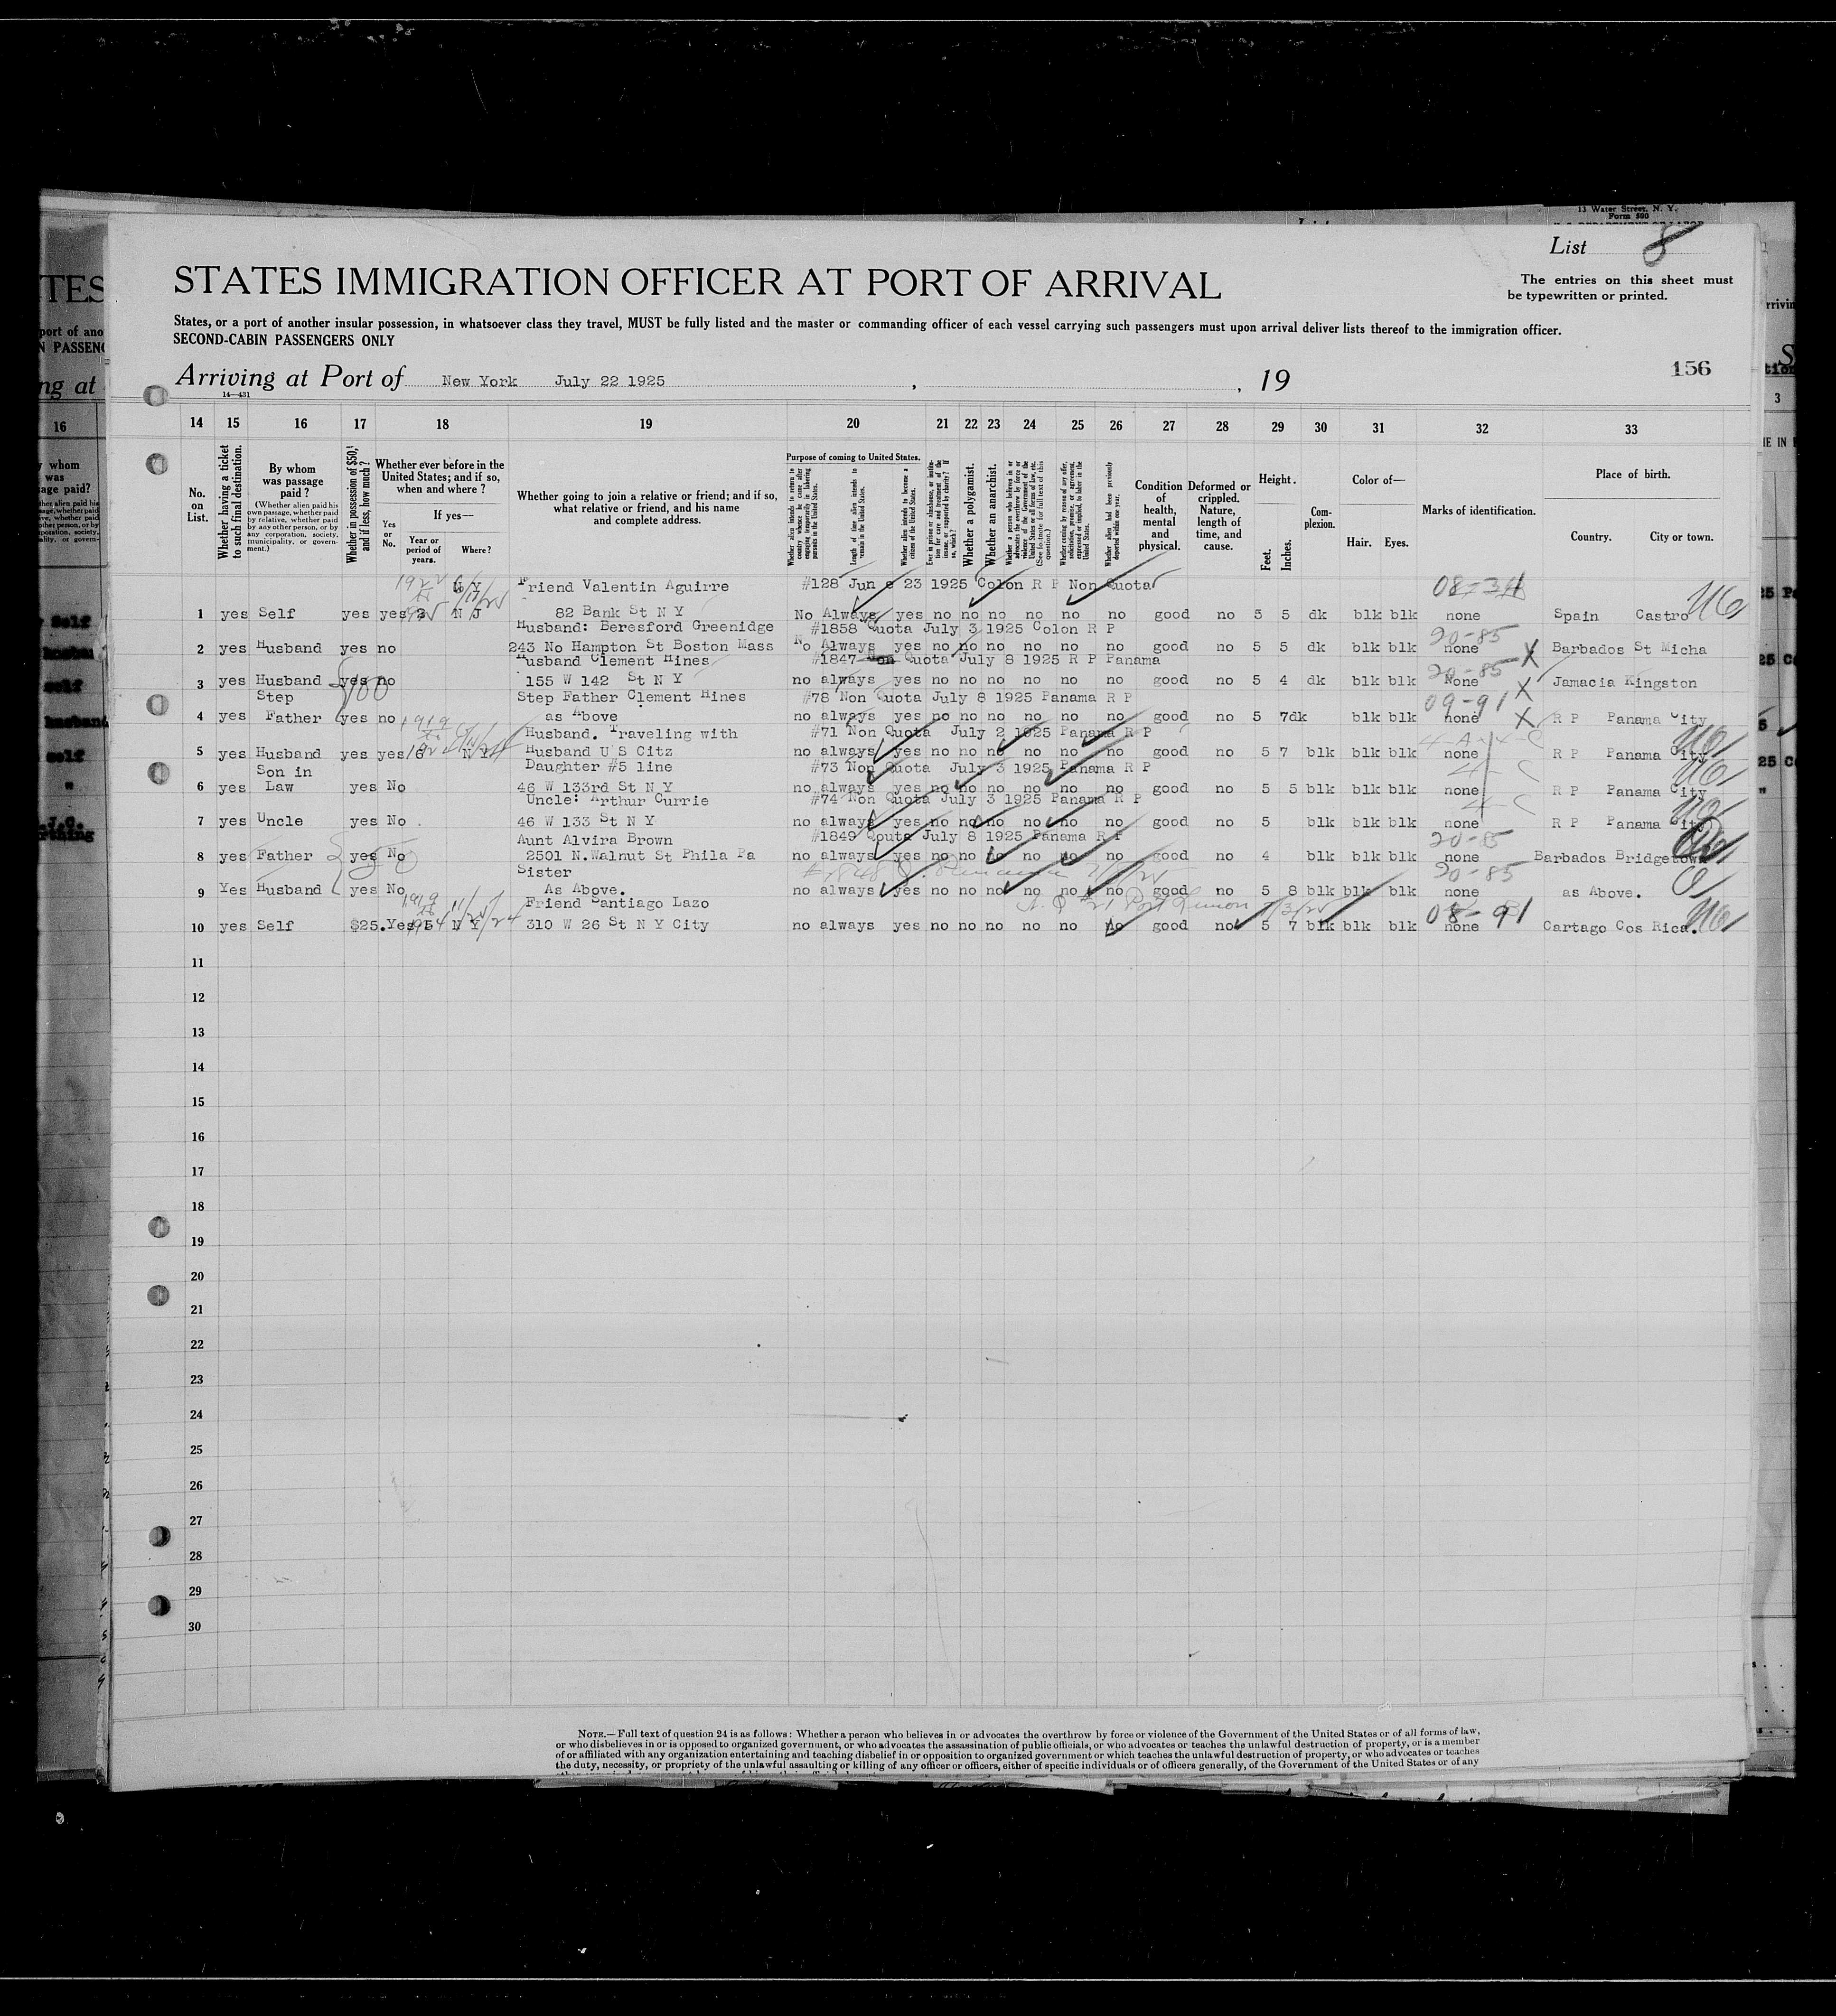 13 Water Street, N. Y.
Form 500
List 8
STATES IMMIGRATION OFFICER AT PORT OF ARRIVAL
The entries on this sheet must
be typewritten or printed.
States, or a port of another insular possession, in whatsoever class they travel, MUST be fully listed and the master or commanding officer of each vessel carrying such passengers must upon arrival deliver lists thereof to the immigration officer.
SECOND-CABIN PASSENGERS ONLY
Arriving at Port of New York July 22 1925 , , 19
156
14—431
14 15 16 17 18 19 20 21 22 23 24 25 26 27 28 29 30 31 32 33
No. on List.
Whether having a ticket to such final destination.
By whom was passage paid?
(Whether alien paid his own passage, whether paid by relative, whether paid by any other person, or by any corporation, society, municipality, or government.)
Whether in possession of $50, and if less, how much?
Whether ever before in the United States; and if so, when and where?
Yes or No.
If yes—
Year or period of years.
Where?
Whether going to join a relative or friend; and if so, what relative or friend, and his name and complete address.
Purpose of coming to United States.
Whether alien intends to return to country whence he came after engaging temporarily in laboring pursuits in the United States.
Length of time alien intends to remain in the United States.
Whether alien intends to become a citizen of the United States.
Whether a polygamist.
Whether an anarchist.
Condition of health, mental and physical.
Deformed or crippled. Nature, length of time, and cause.
Height.
Feet. Inches.
Complexion.
Color of—
Hair. Eyes.
Marks of identification.
Place of birth.
Country. City or town.
N Y Friend Valentin Aguirre #128 Jun e 23 1925 Colon R P Non Quota
1 yes Self yes yes N J 82 Bank St N Y No Always yes no no no no no no good no 5 5 dk blk blk none Spain Castro
Husband: Beresford Greenidge #1858 Quota July 3 1925 Colon R P 20-85
2 yes Husband yes no 243 No Hampton St Boston Mass No Always yes no no no no no no good no 5 5 dk blk blk none X Barbados St Micha
Husband Clement Hines #1847 Non Quota July 8 1925 R P Panama 20-85
3 yes Husband yes no 155 W 142 St N Y no always yes no no no no no no good no 5 4 dk blk blk None X Jamacia Kingston
Step Step Father Clement Hines #78 Non Quota July 8 1925 Panama R P 09-91
4 yes Father yes no as Above no always yes no no no no no no good no 5 7dk blk blk none X R P Panama City
Husband. Traveling with #71 Non Quota July 2 1925 Panama R P
5 yes Husband yes yes N Y Husband U S Citz no always yes no no no no no no good no 5 7 blk blk blk none R P Panama City
Son in Daughter #5 line #73 Non Quota July 3 1925 Panama R P
6 yes Law yes No 46 W 133rd St N Y no always yes no no no no no no good no 5 5 blk blk blk none R P Panama City
Uncle: Arthur Currie #74 Non Quota July 3 1925 Panama R P
7 yes Uncle yes No . 46 W 133 St N Y no always yes no no no no no no good no 5 blk blk blk none R P Panama City
Aunt Alvira Brown #1849 Qouta July 8 1925 Panama R P 20-85
8 yes Father yes No 2501 N.Walnut St Phila Pa no always yes no no no no no no good no 4 blk blk blk none Barbados Bridgetown
Sister 20-85
9 Yes Husband yes No As Above. no always yes no no no no no no good no 5 8 blk blk blk none as Above.
Friend Santiago Lazo 08-91
10 yes Self $25. Yes N Y 310 W 26 St N Y City no always yes no no no no no no good no 5 7 blk blk blk none Cartago Cos Rica.
11
12
13
14
15
16
17
18
19
20
21
22
23
24
25
26
27
28
29
30
NOTE.—Full text of question 24 is as follows: Whether a person who believes in or advocates the overthrow by force or violence of the Government of the United States or of all forms of law,
or who disbelieves in or is opposed to organized government, or who advocates the assassination of public officials, or who advocates or teaches the unlawful destruction of property, or is a member
of or affiliated with any organization entertaining and teaching disbelief in or opposition to organized government or which teaches the unlawful destruction of property, or who advocates or teaches
the duty, necessity, or propriety of the unlawful assaulting or killing of any officer or officers, either of specific individuals or of officers generally, of the Government of the United States or of any